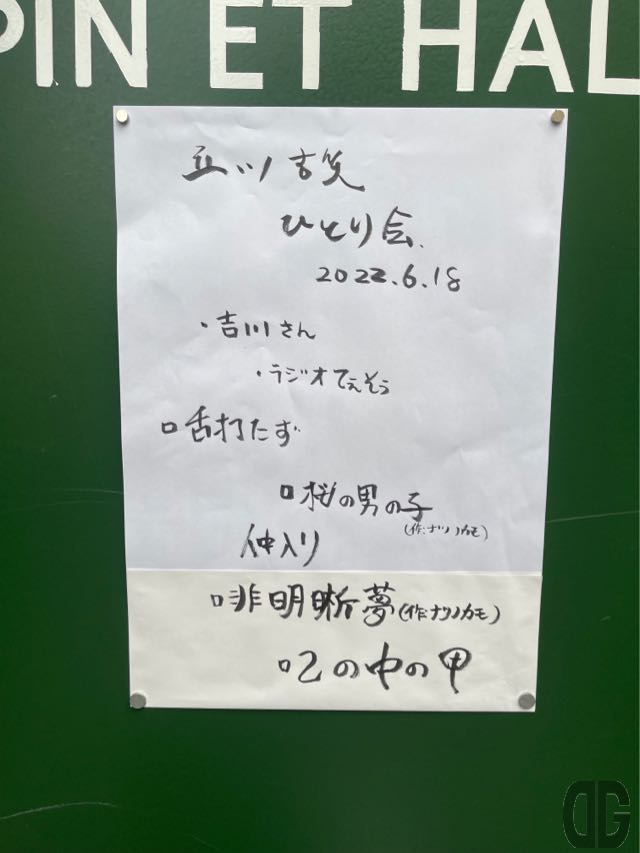 PIN ET HAL
立川吉笑
ひとり会.
2022.6.18
・吉川さん
・ラジオてえそう
口舌打たず
口桜の男の子
(作:ナツノカモ)
仲入り
口非明晰夢(作:ナツノカモ)
口乙の中の甲
DG